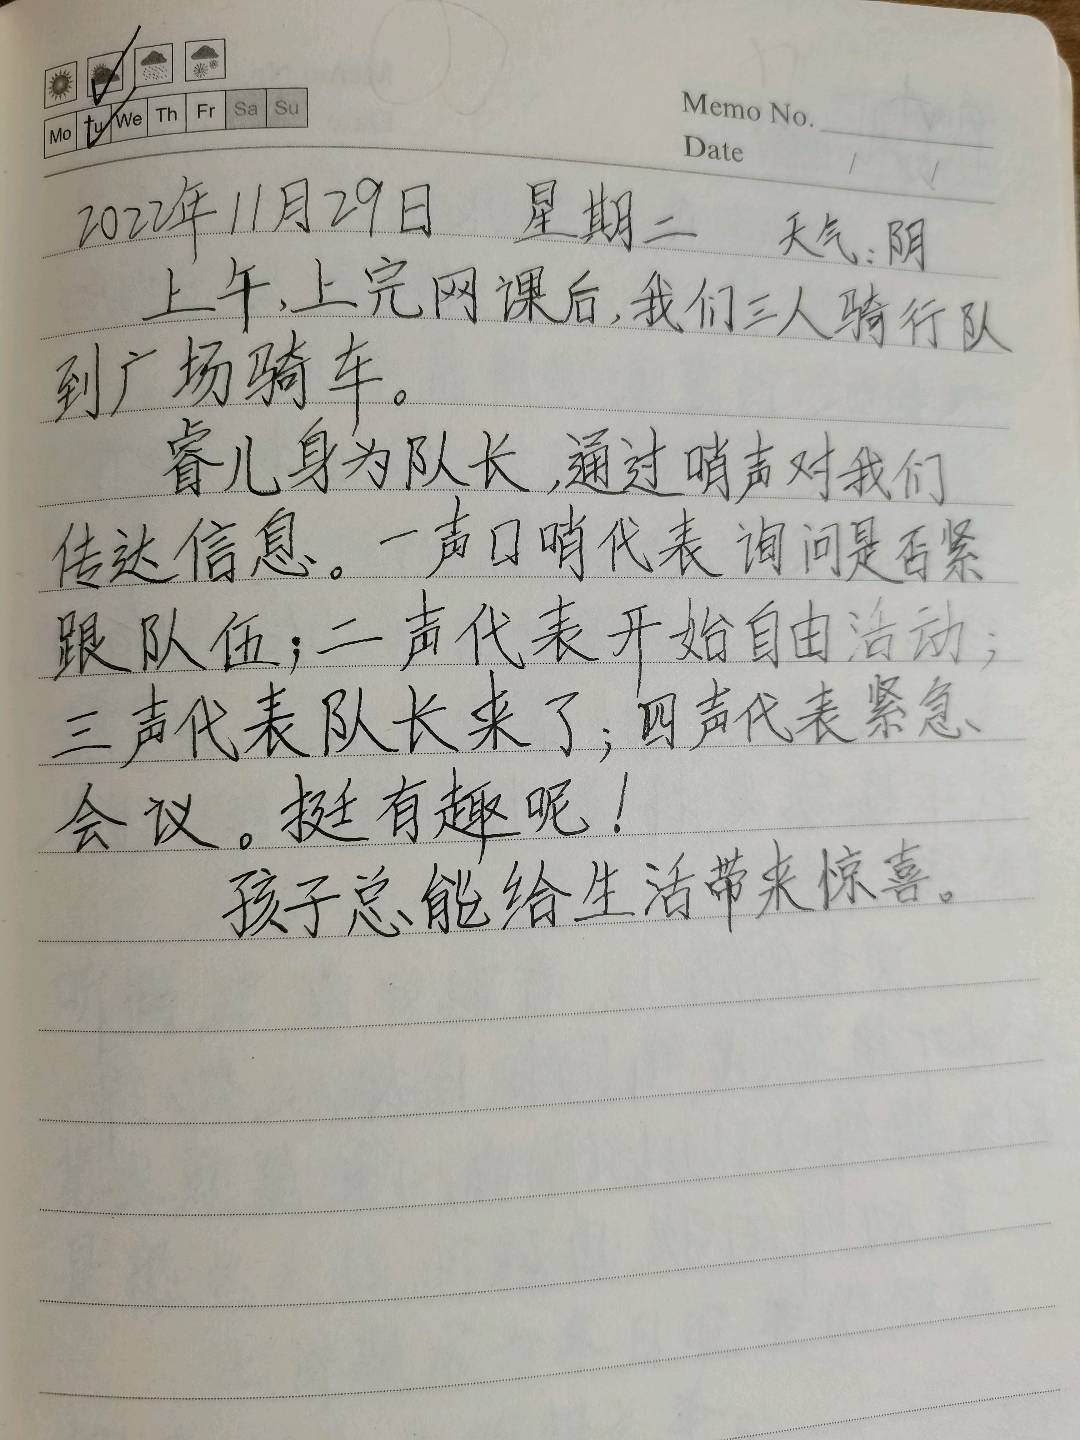 Mo Tu We Th Fr Sa Su
Memo No.
Date
2022年11月29日 星期二 天气:阴
上午,上完网课后,我们三人骑行队
到广场骑车。
睿儿身为队长,通过哨声对我们
传达信息。一声口哨代表询问是否紧
跟队伍;二声代表开始自由活动;
三声代表队长来了;四声代表紧急
会议。挺有趣呢!
孩子总能给生活带来惊喜。